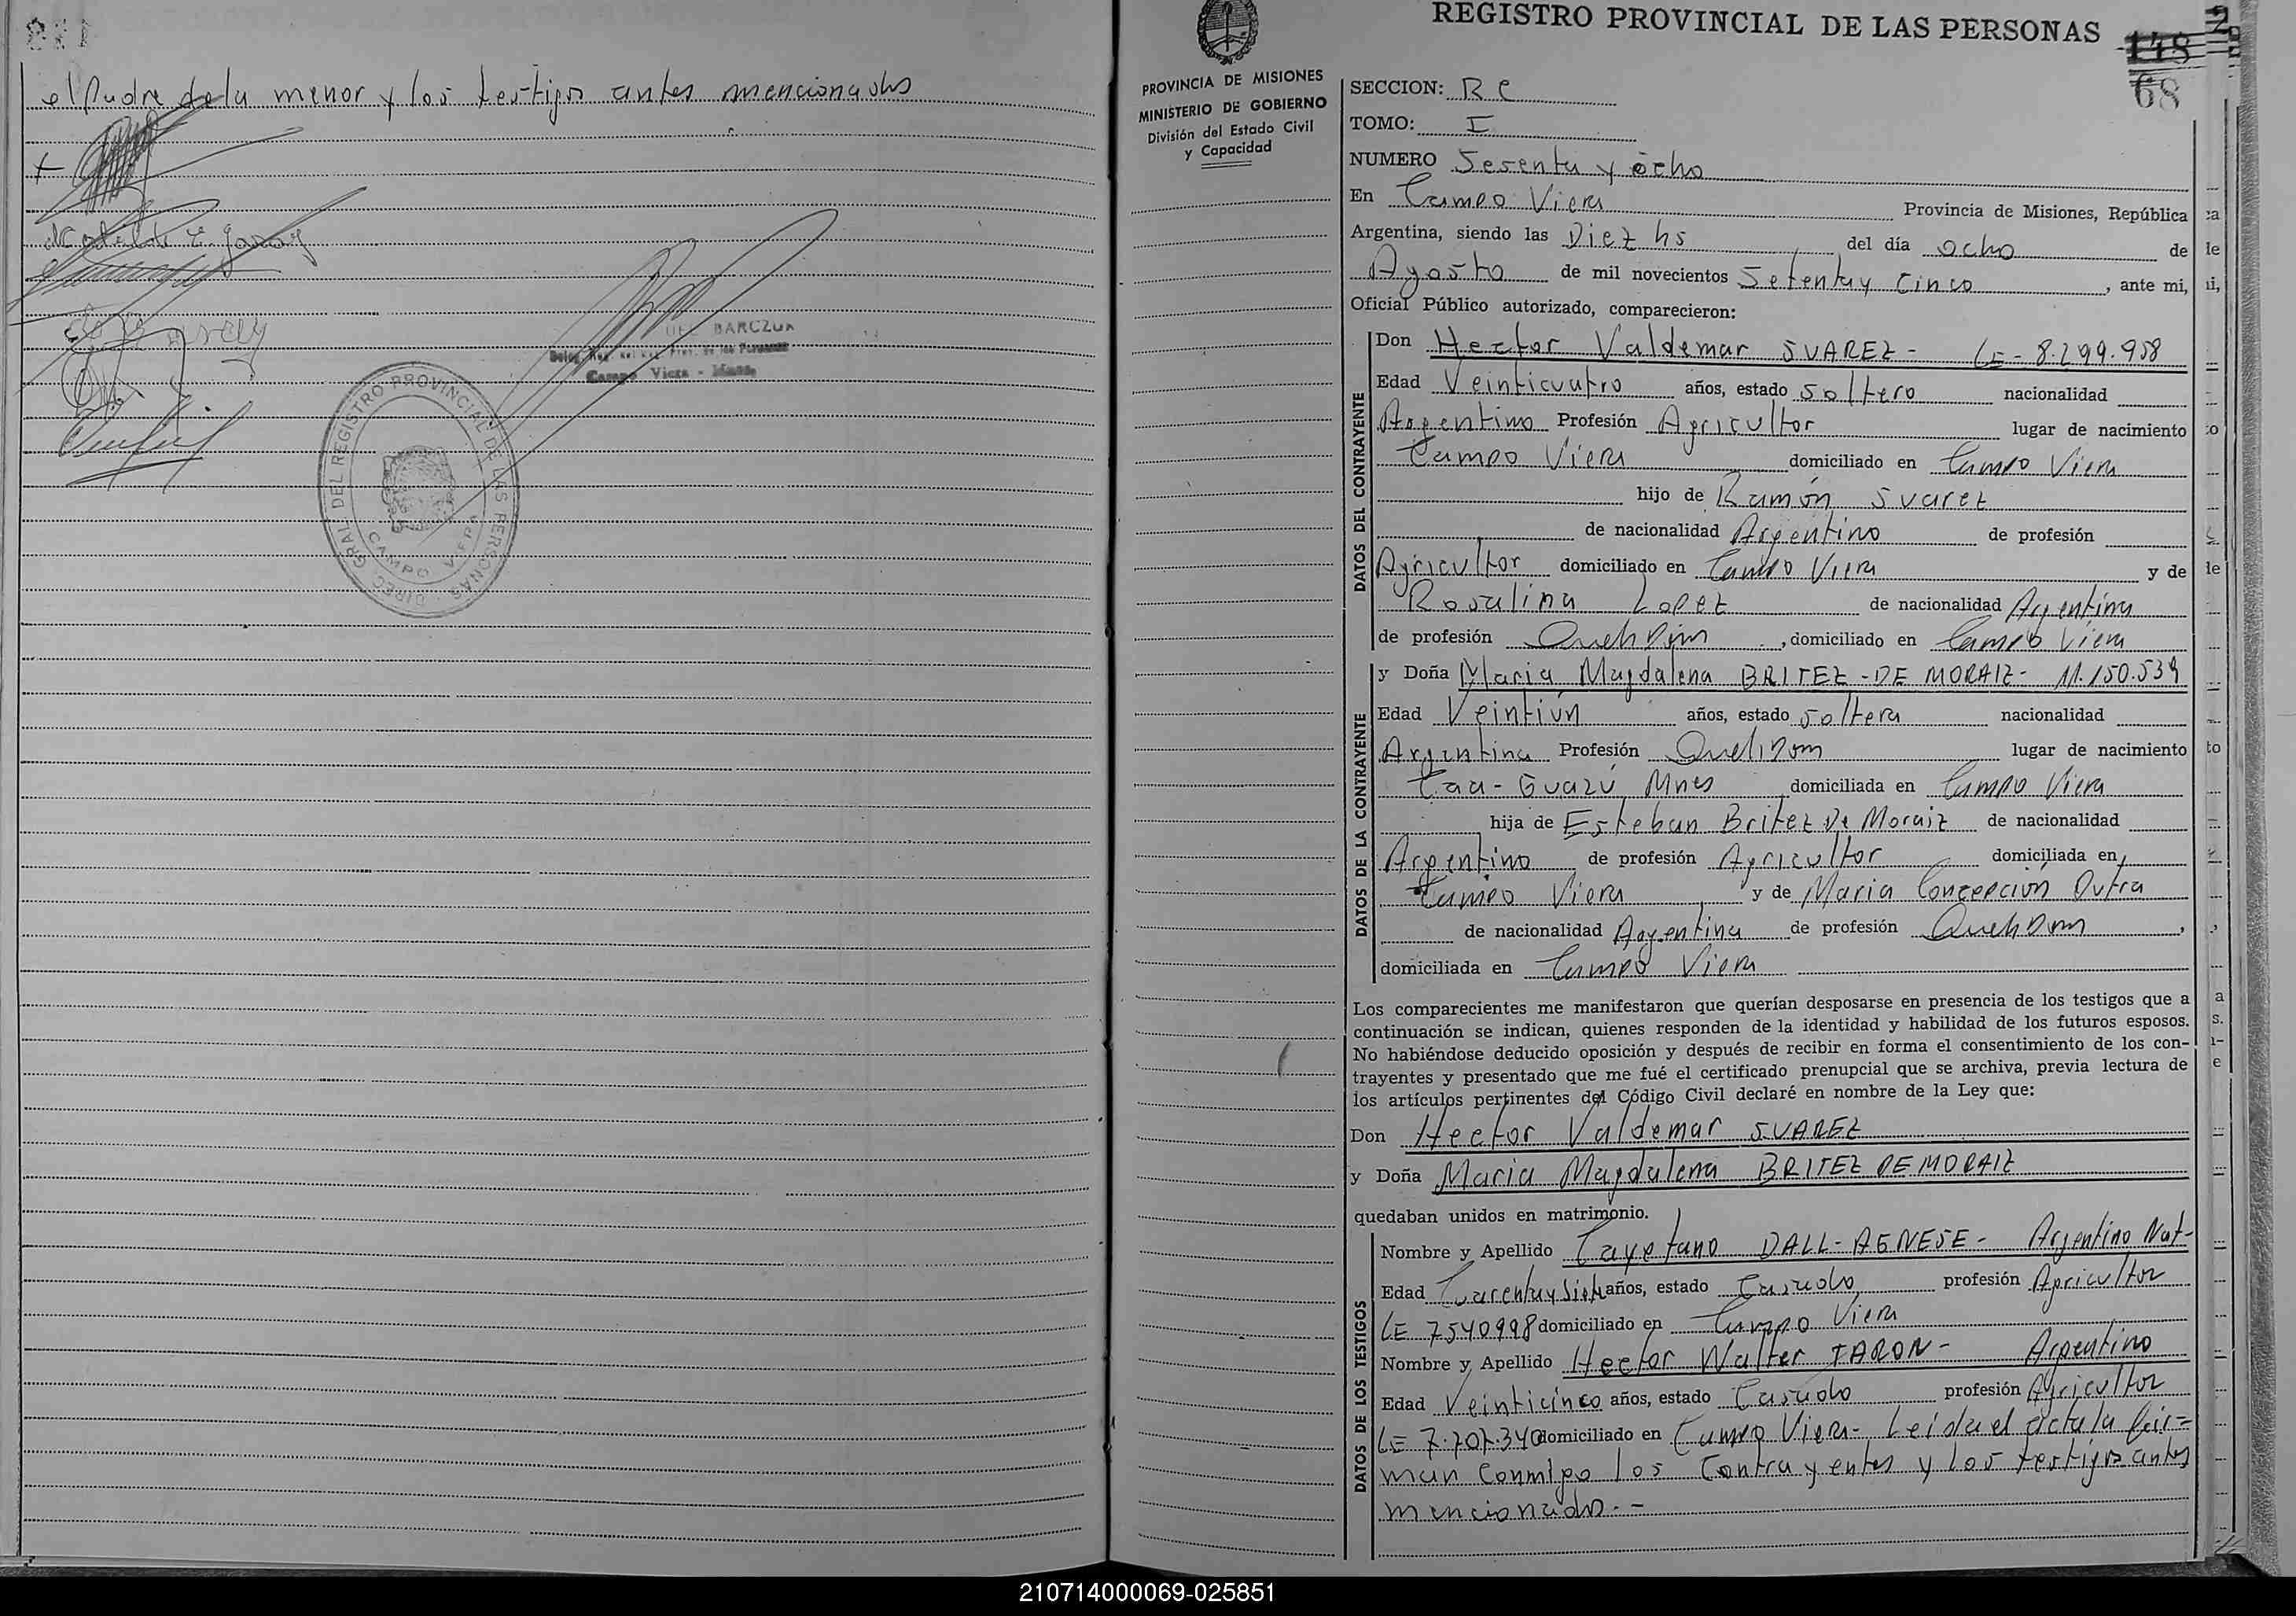 el Padre de la menor y los testigos antes mencionados
BARCZUK
Campo Viera - Mnes.
DIREC. GRAL. DEL REGISTRO PROVINCIAL DE LAS PERSONAS
CAMPO VIERA
REGISTRO PROVINCIAL DE LAS PERSONAS
148
68
PROVINCIA DE MISIONES
MINISTERIO DE GOBIERNO
División del Estado Civil
y Capacidad
SECCION: Re
TOMO: I
NUMERO Sesenta y ocho
En Campo Viera Provincia de Misiones, República
Argentina, siendo las Diez hs del día ocho de
Agosto de mil novecientos Setenta y Cinco, ante mi,
Oficial Público autorizado, comparecieron:
DATOS DEL CONTRAYENTE
Don Hector Valdemar SUAREZ - LE - 8.299.958
Edad Veinticuatro años, estado soltero nacionalidad
Argentino Profesión Agricultor lugar de nacimiento
Campo Viera domiciliado en Campo Viera
hijo de Ramón Suarez
de nacionalidad Argentino de profesión
Agricultor domiciliado en Campo Viera y de
Rosalina Lopez de nacionalidad Argentina
de profesión Queh Dom, domiciliado en Campo Viera
DATOS DE LA CONTRAYENTE
y Doña Maria Magdalena BRITEZ - DE MORAIZ - 11.150.539
Edad Veintiún años, estado soltera nacionalidad
Argentina Profesión Queh Dom lugar de nacimiento
Caa - Guazú Mnes domiciliada en Campo Viera
hija de Esteban Britez De Moraiz de nacionalidad
Argentino de profesión Agricultor domiciliada en
Campo Viera y de Maria Concepción Dutra
de nacionalidad Argentina de profesión Queh Dom,
domiciliada en Campo Viera
Los comparecientes me manifestaron que querían desposarse en presencia de los testigos que a
continuación se indican, quienes responden de la identidad y habilidad de los futuros esposos.
No habiéndose deducido oposición y después de recibir en forma el consentimiento de los con-
trayentes y presentado que me fué el certificado prenupcial que se archiva, previa lectura de
los artículos pertinentes del Código Civil declaré en nombre de la Ley que:
Don Hector Valdemar SUAREZ
y Doña Maria Magdalena BRITEZ DE MORAIZ
quedaban unidos en matrimonio.
DATOS DE LOS TESTIGOS
Nombre y Apellido Cayetano DALL-AGNESE - Argentino Nat-
Edad Cuarenta y Siete años, estado Casado profesión Agricultor
LE 7540998 domiciliado en Campo Viera
Nombre y Apellido Hector Walter TARON - Argentino
Edad Veinticinco años, estado Casado profesión Agricultor
LE 7.707.340 domiciliado en Campo Viera - Leida el acta la fir=
man Conmigo los Contrayentes y los testigos antes
mencionados. -
210714000069-025851